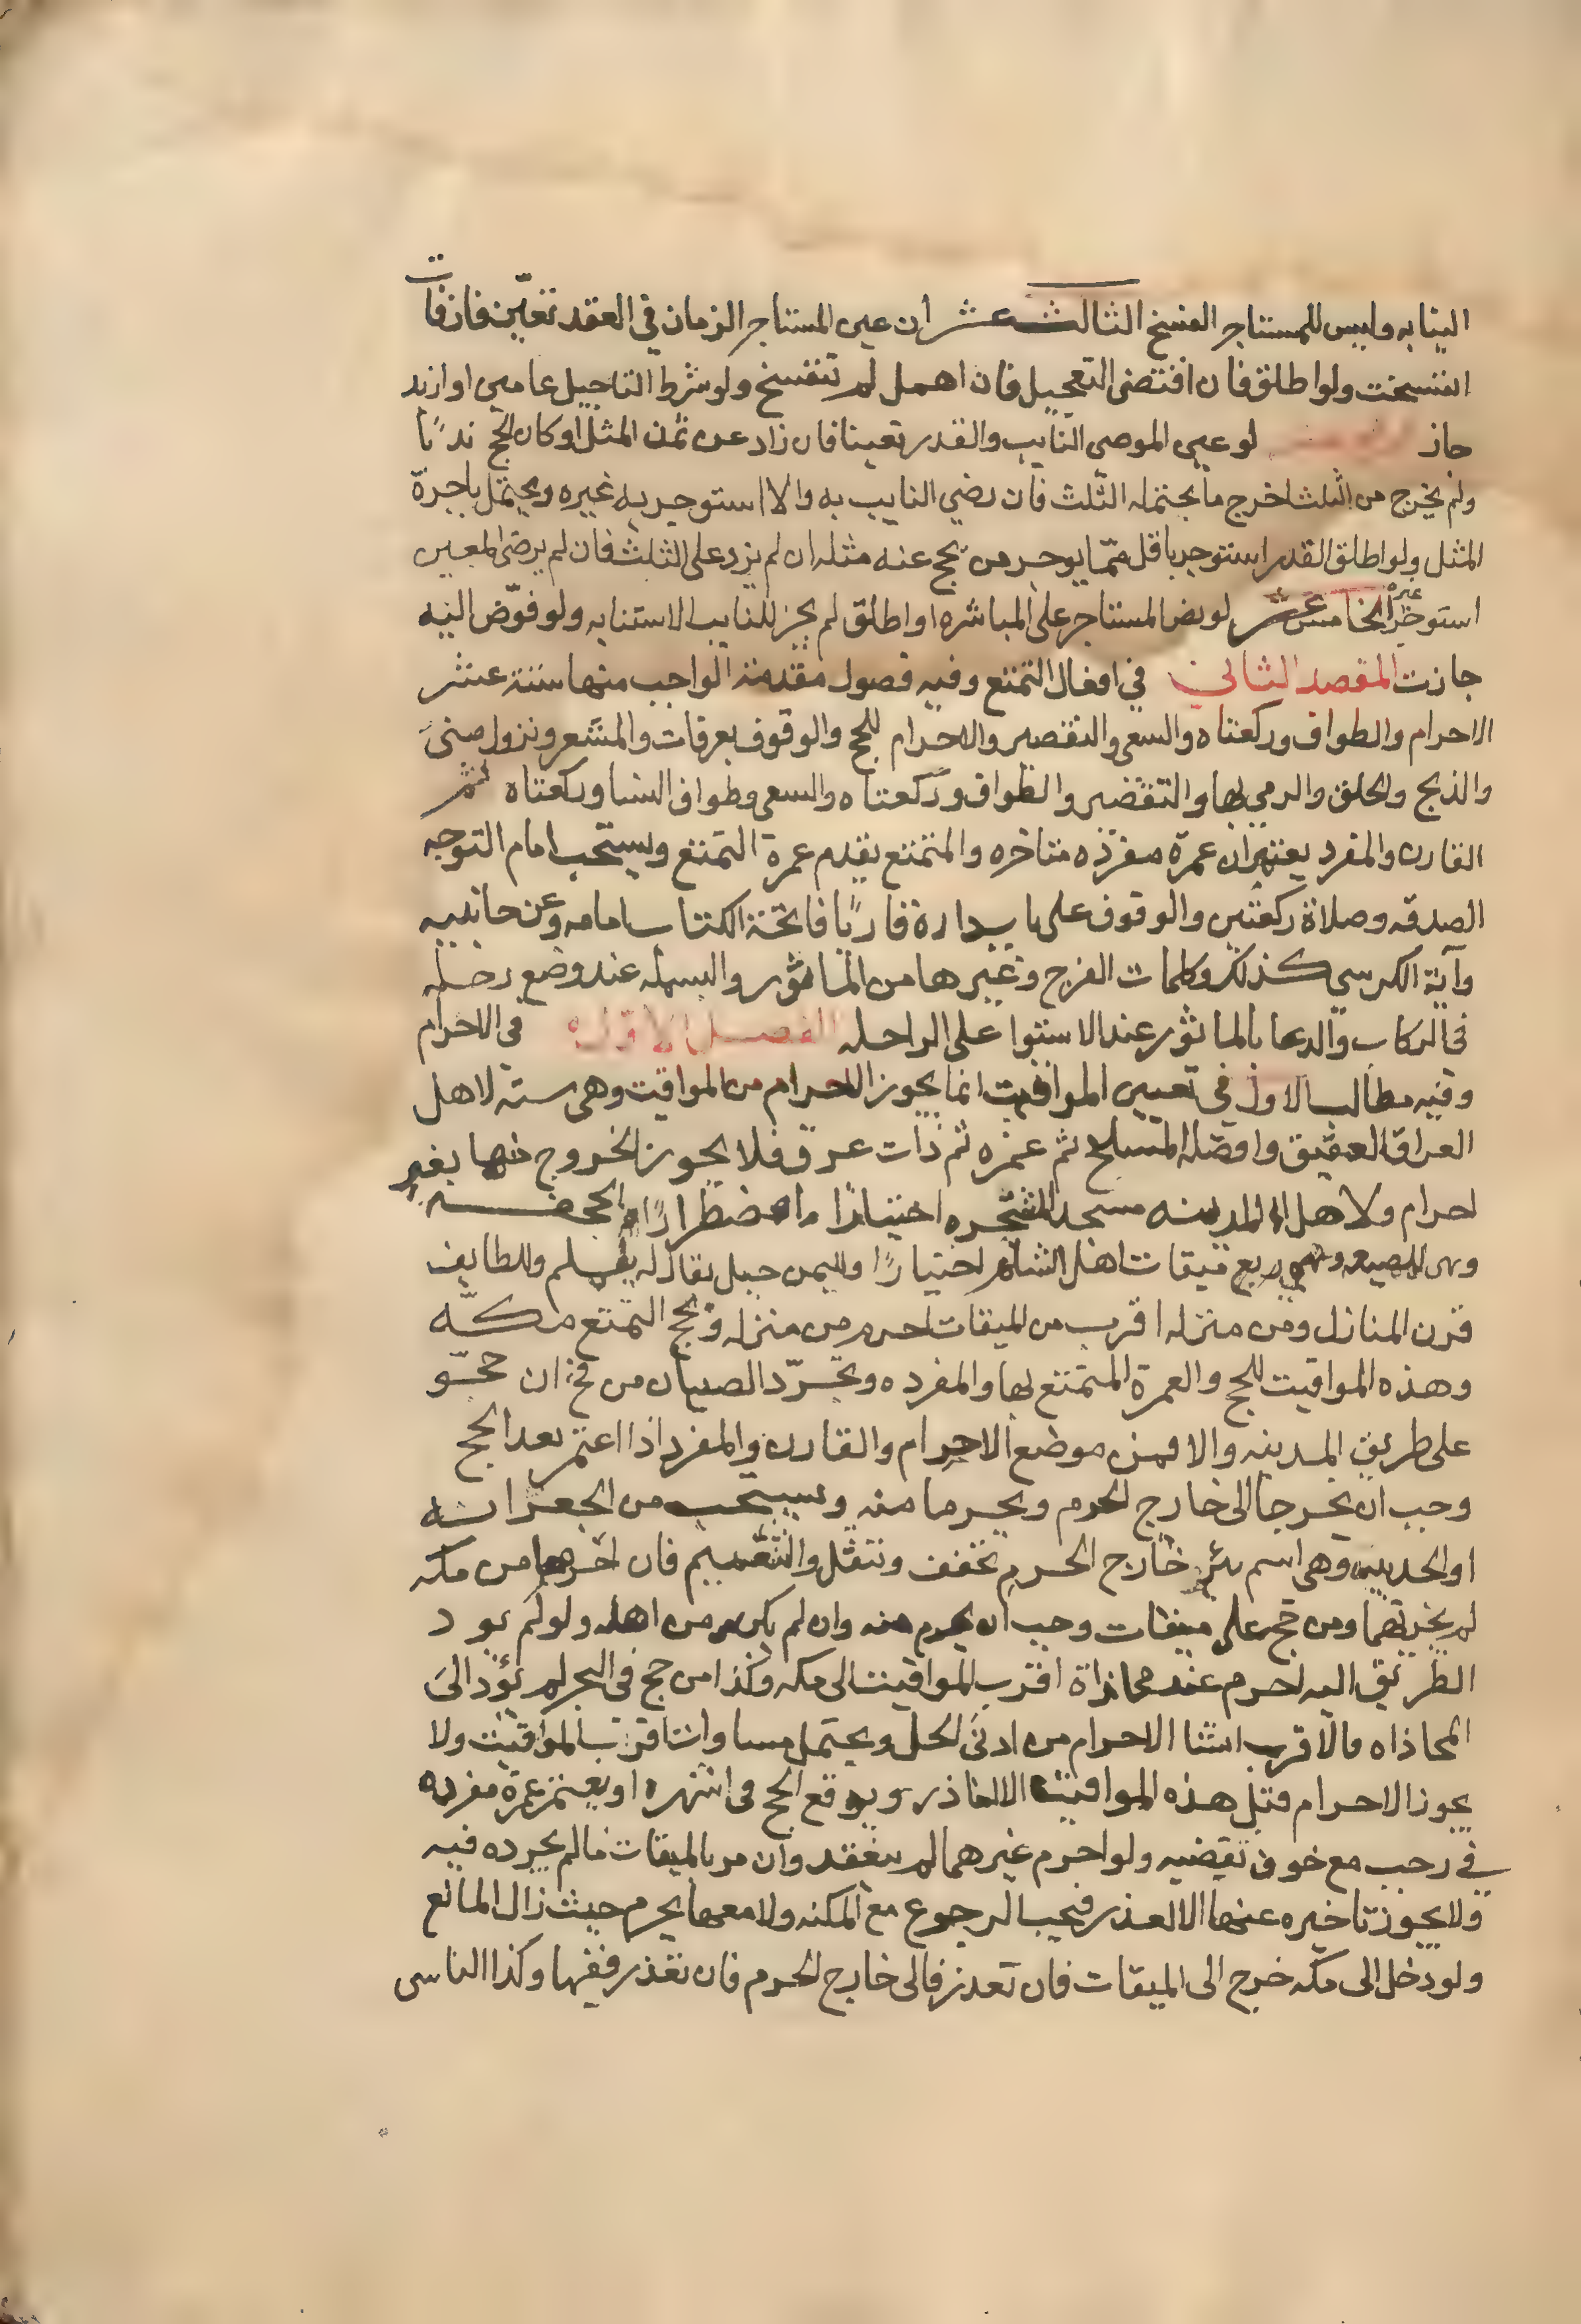 النيابه وليس للمستاجر الفسخ الثالث عشر ان عين المستاجر الزمان في العقد تعيّن فان فات
انفسخت ولو اطلق فان اقتضى التعجيل فان اهمل لم تنفسخ ولو شرط التاجيل عامين او ازيد
جاز لو عين الموصي النايب والقدر تعينا فان زاد عن ثمن المثل او كان الحج ندبًا
ولم يخرج من الثلث اخرج ما يحتمله الثلث فان رضي النايب به والا استوجر به غيره ويحتمل باجرة
المثل ولو اطلق القدر استوجر باقل ممّا يوجر من يحج عنه مثله ان لم يزد على الثلث فان لم يرضى المعين
استوجر غيره الخامس عشر لو نص المستاجر على المباشره او اطلق لم يجز للنايب الاستنابه ولو فوّض اليه
جازت المقصد الثاني في افعال التمتع وفيه فصول مقدمة الواجب منها ستة عشر
الاحرام والطواف وركعتاه والسعي والتقصير والاحرام للحج والوقوف بعرفات والمشعر ونزول منىَ
والذبح والحلق والرمي بها والتقصير والطواف وركعتاه والسعي وطواف النسا وركعتاه ثم
القارن والمفرد يعتمران عمرة مفرده متاخره والمتمتع يقدم عمرة التمتع ويستحب امام التوجه
الصدقه وصلاة ركعتين والوقوف على باب داره قاريًا فاتحة الكتاب امامه وعن جانبيه
وآية الكرسي كذلك وكلمات الفرج وغيرها من المأثور والبسمله عند وضع رجله
في الركاب والدعا بالماثور عند الاستوا على الراحله الفصل الاول في الاحرام
وفيه مطالب الاول في تعيين المواقيت انما يجوز الاحرام من المواقيت وهي سته لاهل
العراق العقيق وافضله المسلخ ثم غمره ثم ذات عرق فلا يجوز الخروج منها بغير
احرام ولاهل المدينه مسجد الشجره اختيارًا واضطرارًا الجحفه
وهي المهيعه وهي ميقات اهل الشام اختيارًا ولليمن جبل يقال له يلملم وللطايف
قرن المنازل ومن منزله اقرب من الميقات احرم من منزله وحج التمتع مكّه
وهذه المواقيت للحج والعمرة المتمتع بها والمفرده وتجرّد الصبيان من فخ ان حجّو
على طريق المدينه والا فمن موضع الاحرام والقارن والمفرد اذا اعتمر بعد الحج
وجب ان يخرجا الى خارج الحرم ويحرما منه ويستحب من الجعرانه
او الحديبيه وهي اسم بئر خارج الحرم تخفف وتثقل والتنعيم فان احرما من مكه
لم يجزيهما ومن حج على ميقات وجب ان يحرم منه وان لم يكن من اهله ولو لم يود
الطريق اليه احرم عند محاذاة اقرب المواقيت الى مكه وكذا من حج في البحر لم يؤد الىَ
المحاذاه فالاقرب انشا الاحرام من ادنى الحل ويحتمل مساواة اقرب المواقيت ولا
يجوز الاحرام قبل هذه المواقيت الا لناذر ويوقع الحج في اشهره او يعتمر عمرة مفرده
في رجب مع خوف تقضيه ولو احرم غيرهما لم ينعقد وان مر بالميقات ما لم يجرده فيه
ولا يجوز تاخيره عنها الا لعذر فيجب الرجوع مع المكنه ولا معها يحرم حيث زال المانع
ولو دخل الى مكّه خرج الى الميقات فان تعذر فالى خارج الحرم فان تعذر ففيها وكذا الناسي